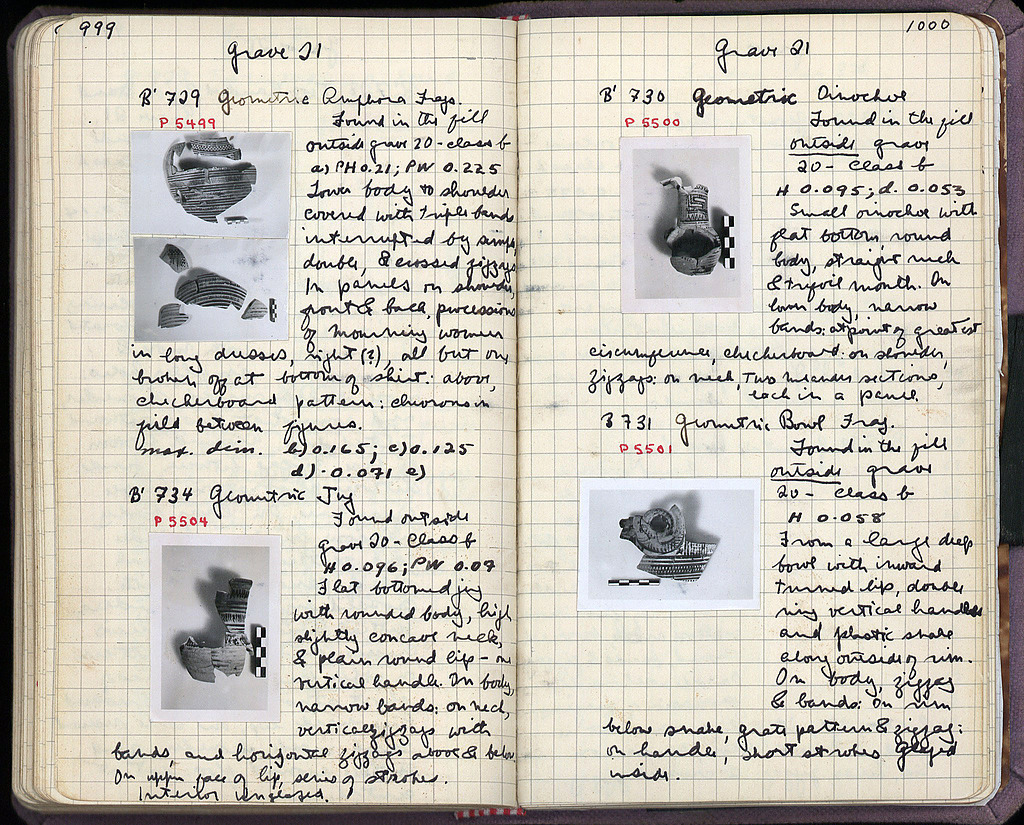 999
Grave 21
B' 729 Geometric Amphora Frags.
P 5499
Found in the fill
outside grave 20 - class b
a) PH 0.21; PW 0.225
Lower body to shoulder
covered with triple bands
interrupted by simple,
double, & crossed zigzags
In panels on shoulder,
front & back, processions
of mourning women
in long dresses, right (?), all but one
broken off at bottom of skirt: above,
checkerboard pattern: chevrons in
field between figures.
max. dim. b) 0.165; c) 0.125
d) - 0.071 e)
B' 734 Geometric Jug
P 5504
Found outside
grave 20 - Class b
H 0.096; PW 0.09
Flat bottomed jug
with rounded body, high
slightly concave neck,
& plain round lip - one
vertical handle. On body,
narrow bands: on neck,
vertical zigzags with
bands, and horizontal zigzags above & below
On upper face of lip, series of strokes.
Interior unglazed.
1000
Grave 21
B' 730 Geometric Oinochoe
P 5500
Found in the fill
outside grave
20 - Class b
H 0.095; d. 0.053
Small oinochoe with
flat bottom, round
body, straight neck
& trefoil mouth. On
lower body, narrow
bands: at point of greatest
circumference, checkerboard: on shoulder,
zigzags: on neck, two meander sections,
each in a panel
B 731 Geometric Bowl Frag.
P 5501
Found in the fill
outside grave
20 - Class b
H 0.058
From a large deep
bowl with inward
turned lip, double
ring vertical handles
and plastic snake
along outside of rim.
On body, zigzag
& bands: On rim
below snake, grate pattern & zigzag:
on handle, short strokes glazed
inside.